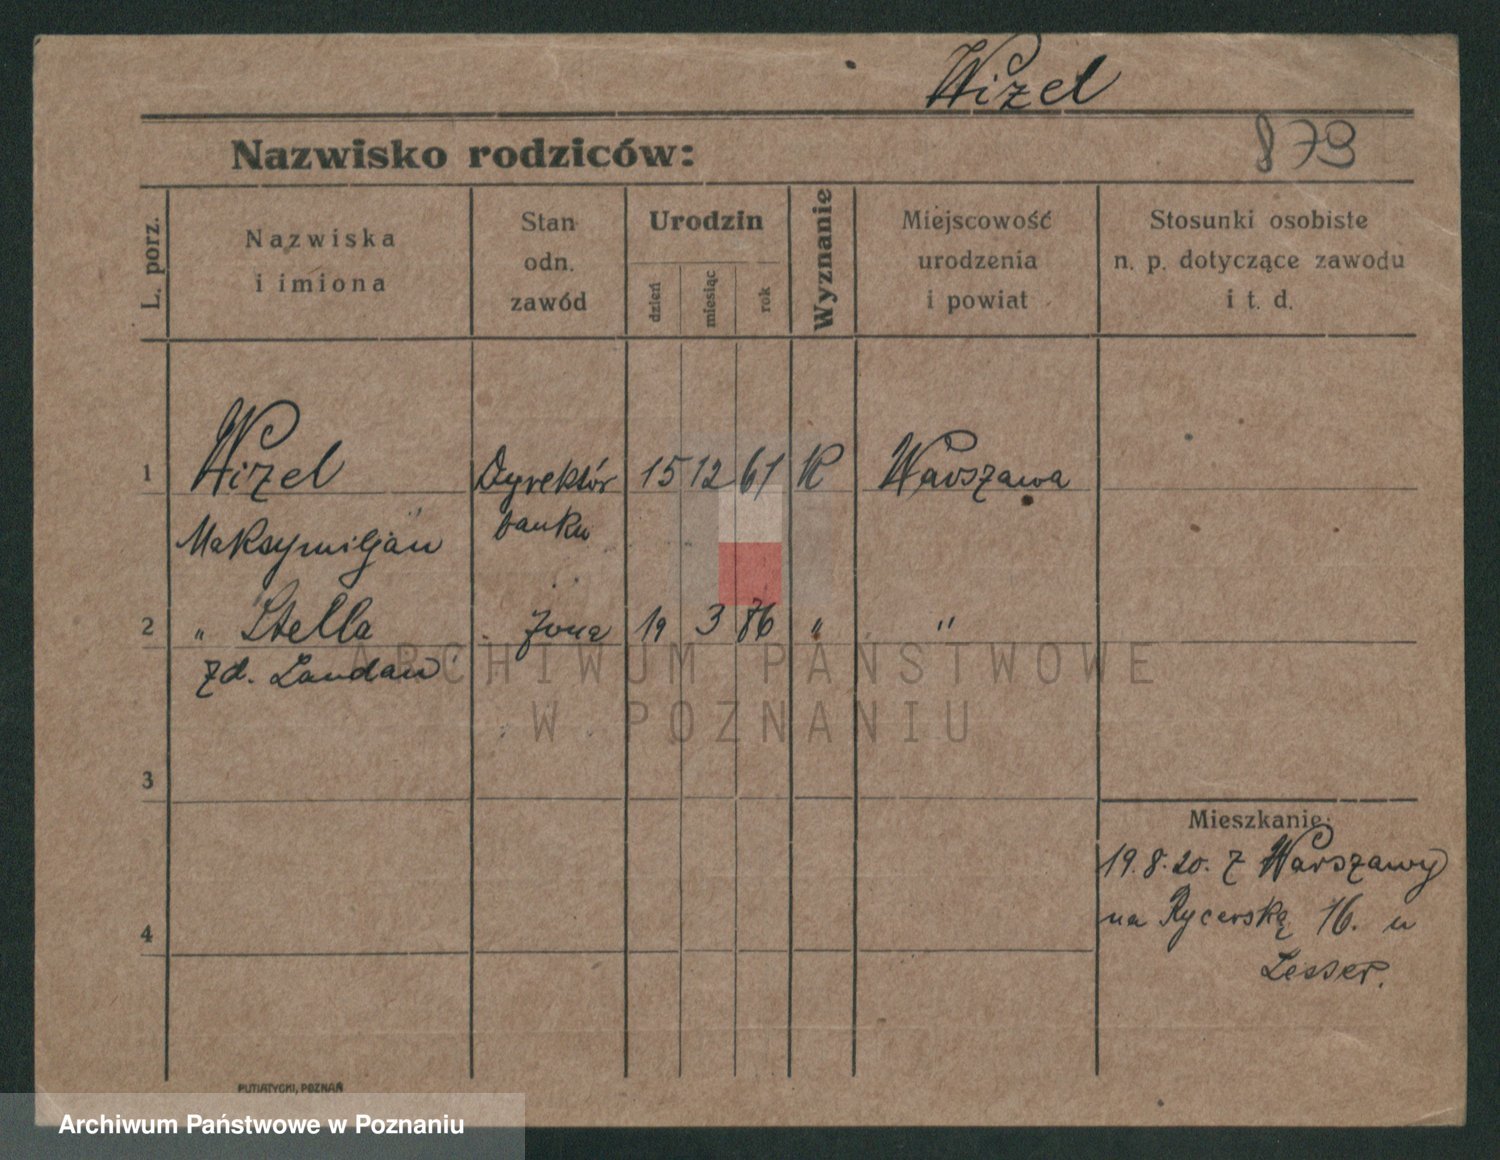 Wizel
Nazwisko rodziców:
873
L. porz.
Nazwiska
i imiona
Stan
odn.
zawód
Urodzin
dzień
miesiąc
rok
Wyznanie
Miejscowość
urodzenia
i powiat
Stosunki osobiste
n. p. dotyczące zawodu
i t. d.
1 Wizel Dyrektór 15 12 61 R Warszawa
Maksymiljan banku
2 " Stella żona 19 3 76 " "
zd. Landau
ARCHIWUM PAŃSTWOWE
W POZNANIU
3
Mieszkanie:
19.8.20. z Warszawy
na Rycerską 16. u
Lesser.
4
PUTIATYCKI, POZNAŃ
Archiwum Państwowe w Poznaniu